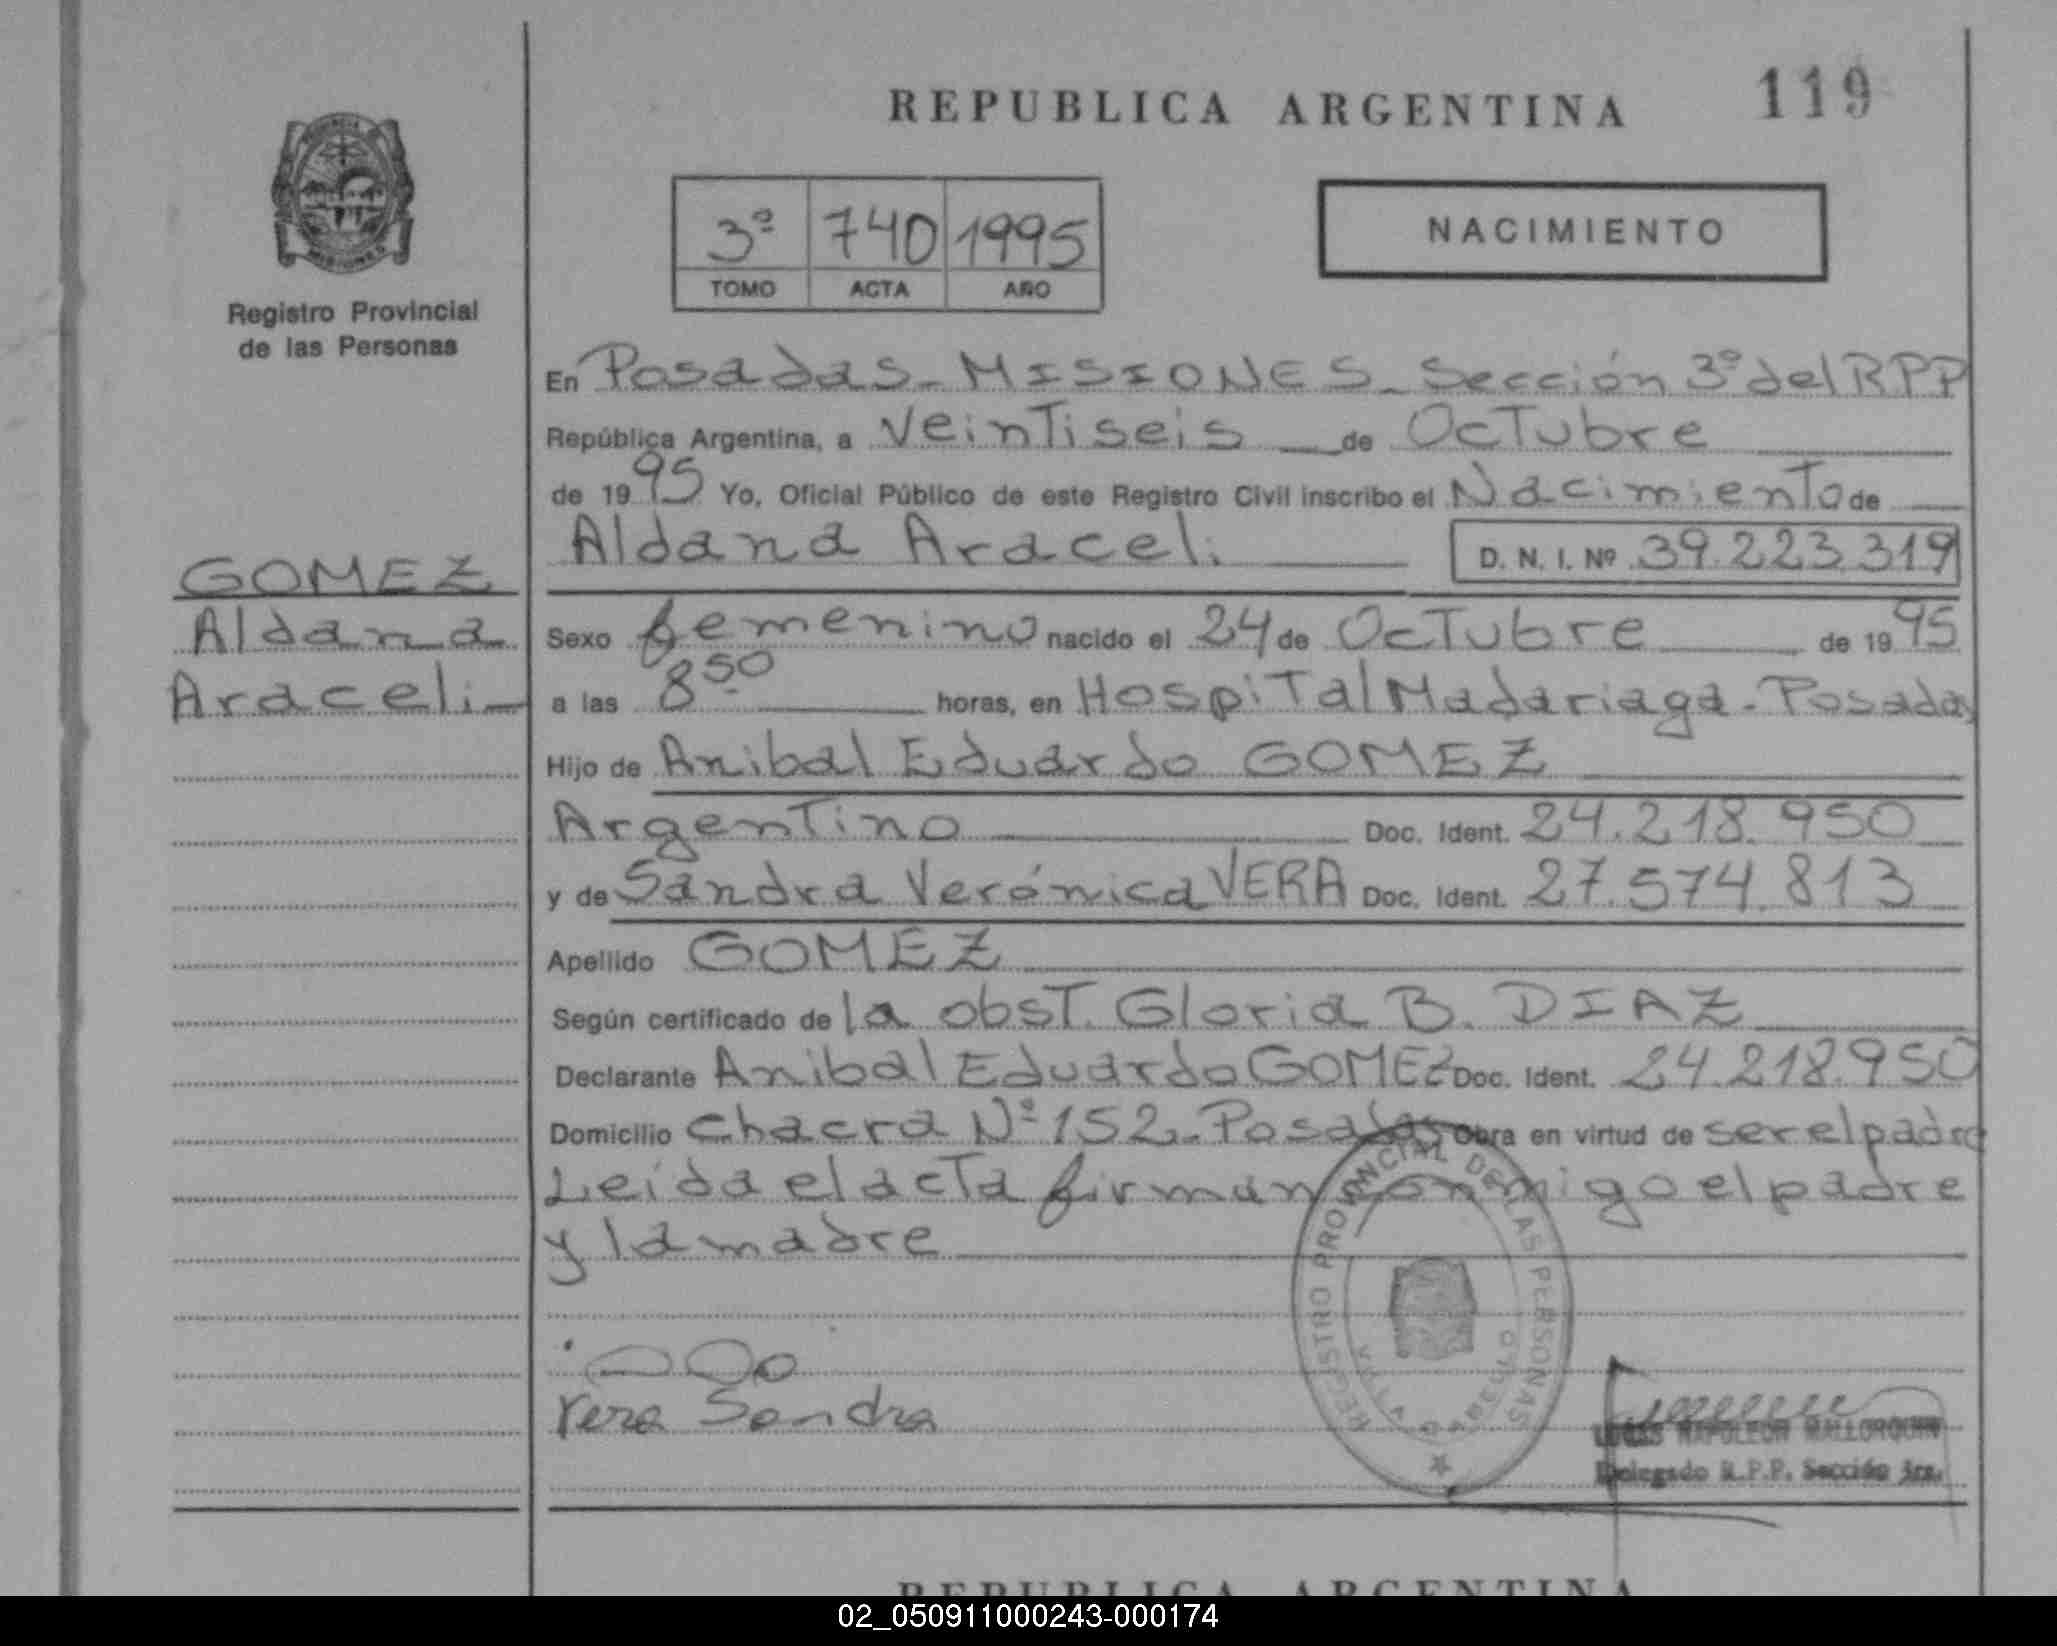 REPUBLICA ARGENTINA 119
3º 740 1995
TOMO ACTA AÑO
NACIMIENTO
Registro Provincial
de las Personas
GOMEZ
Aldana
Araceli
En Posadas - MISIONES - Sección 3º del RPP
República Argentina, a veintiseis de Octubre
de 1995 Yo, Oficial Público de este Registro Civil inscribo el Nacimiento de
Aldana Araceli D. N. I. Nº 39.223.319
Sexo femenino nacido el 24 de Octubre de 1995
a las 8 50 horas, en Hospital Madariaga - Posadas
Hijo de Anibal Eduardo GOMEZ
Argentino Doc. Ident. 24.218.950
y de Sandra Verónica VERA Doc. Ident. 27.574.813
Apellido GOMEZ
Según certificado de la obst. Gloria B. DIAZ
Declarante Anibal Eduardo GOMEZ Doc. Ident. 24.218.950
Domicilio Chacra Nº 152 - Posadas Obra en virtud de ser el padre
Leída el acta firman conmigo el padre
y la madre
Vera Sandra
REGISTRO PROVINCIAL DE LAS PERSONAS
LUCAS NAPOLEON MALLORQUIN
Delegado R.P.P. Sección 3ra.
REPUBLICA ARGENTINA
02_050911000243-000174